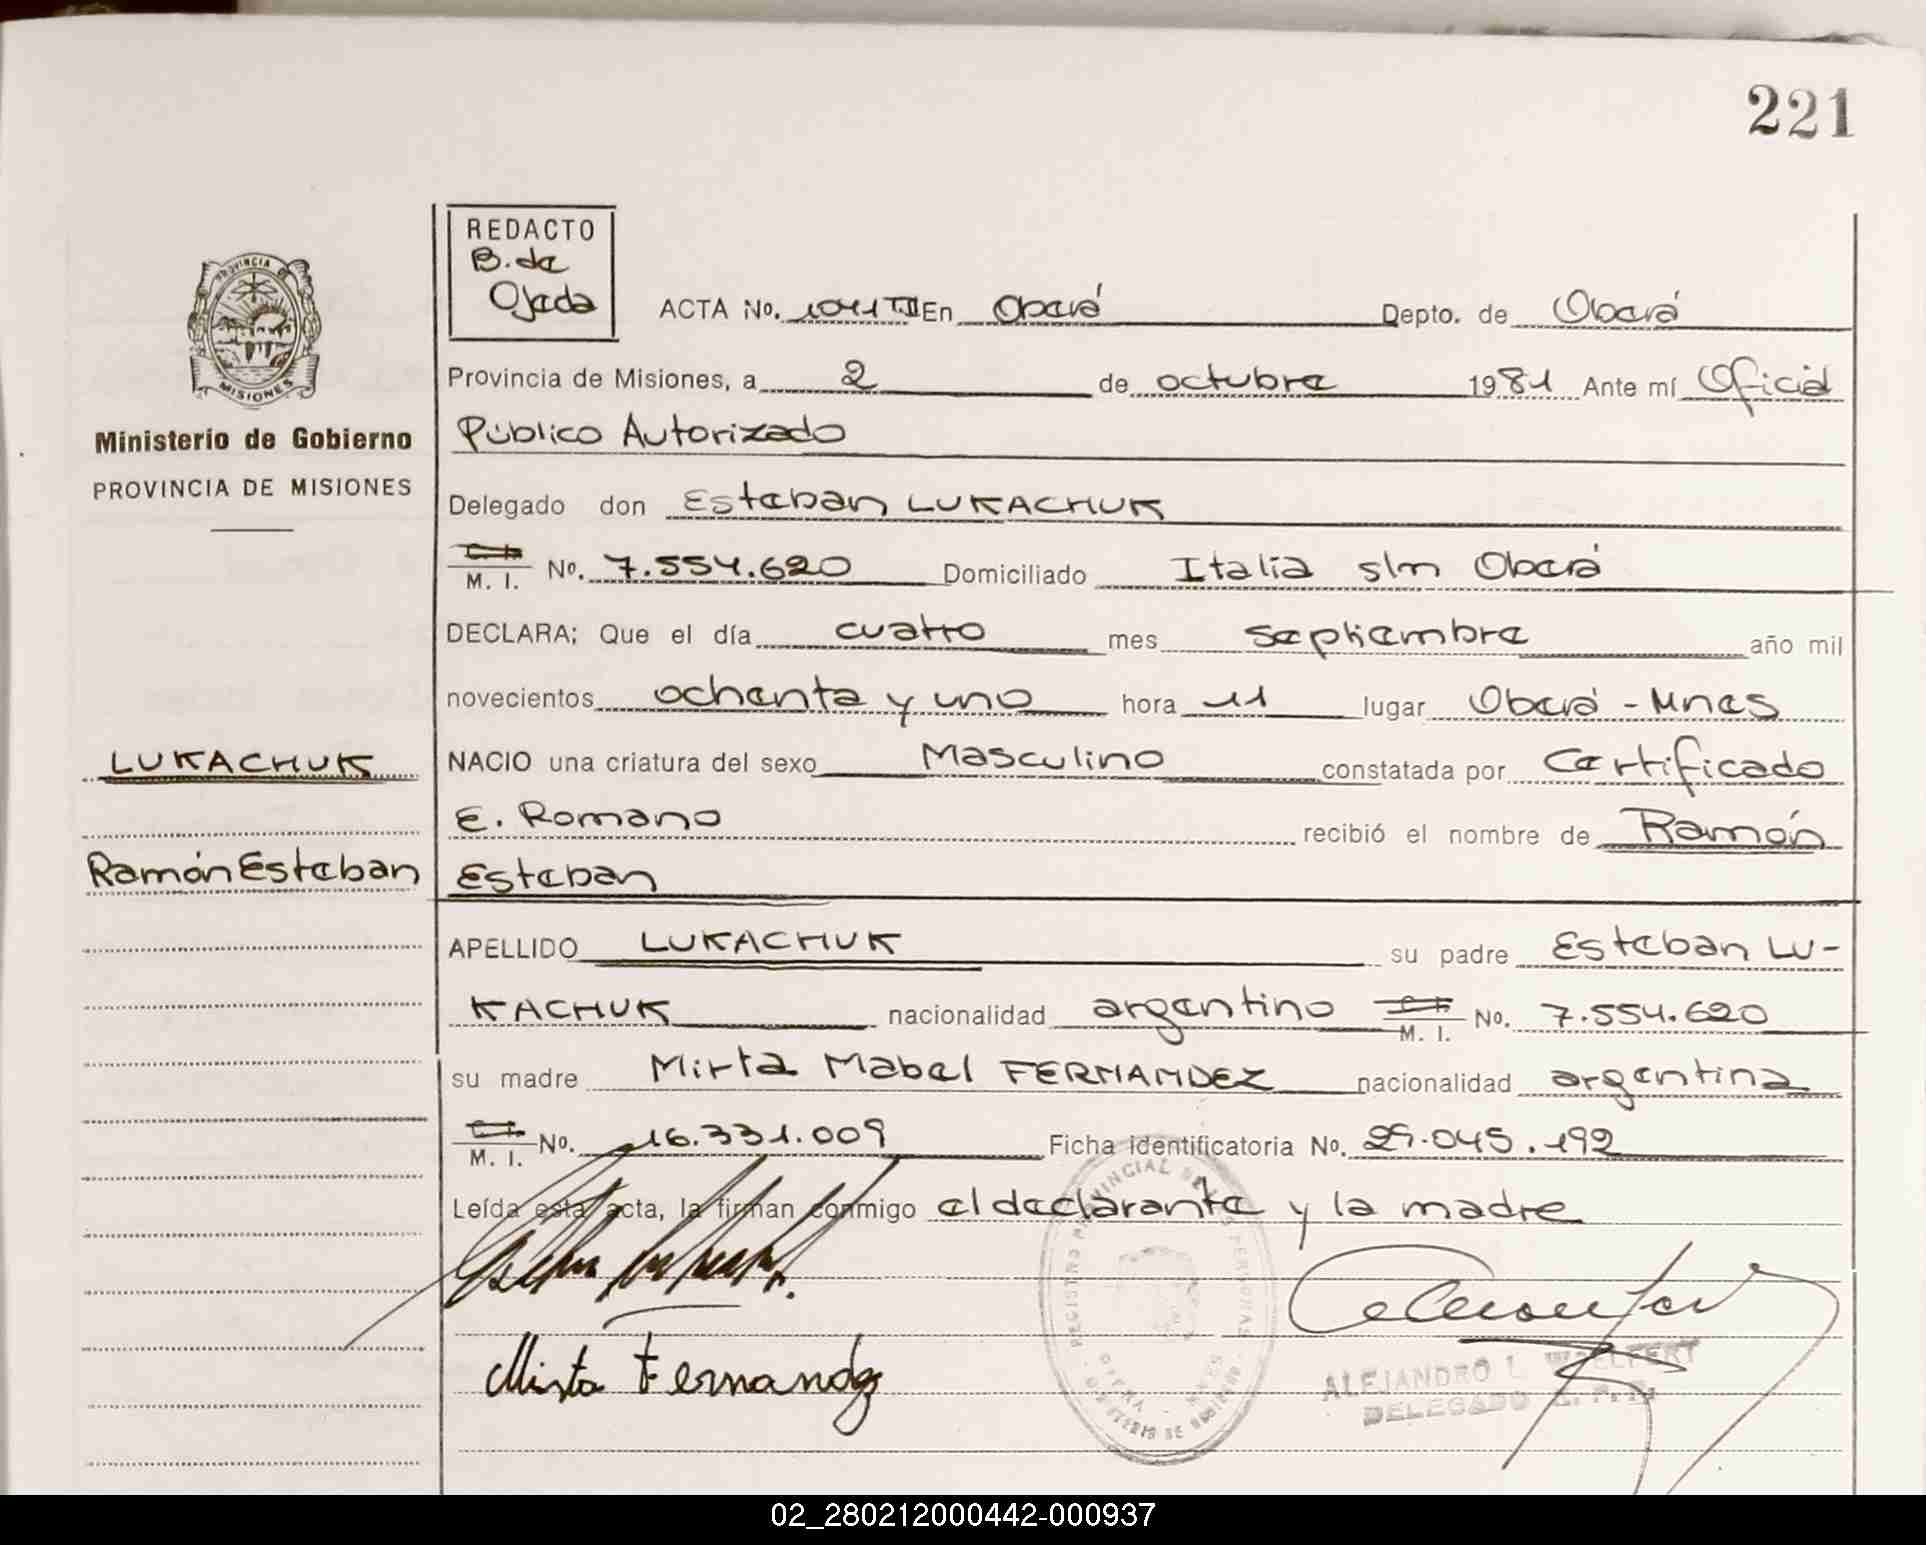 221
REDACTO
B. de
Ojeda
PROVINCIA DE
MISIONES
ACTA No. 1041 T.II En Oberá Depto. de Oberá
Provincia de Misiones, a 2 de octubre 1981 Ante mí Oficial
Ministerio de Gobierno
Público Autorizado
PROVINCIA DE MISIONES
Delegado don Esteban LUKACHUK
M. I. No. 7.554.620 Domiciliado Italia s/n Oberá
DECLARA; Que el día cuatro mes septiembre año mil
novecientos ochenta y uno hora 11 lugar Oberá - Mnes
LUKACHUK
NACIO una criatura del sexo Masculino constatada por Certificado
E. Romano recibió el nombre de Ramón
Ramón Esteban
Esteban
APELLIDO LUKACHUK su padre Esteban LU-
KACHUK nacionalidad argentino M. I. No. 7.554.620
su madre Mirta Mabel FERNANDEZ nacionalidad argentina
M. I. No. 16.331.009 Ficha identificatoria No. 29.045.192
Leída esta acta, la firman conmigo el declarante y la madre
Mirta Fernandez
REGISTRO PROVINCIAL DE LAS PERSONAS
OBERA - MNES
MINISTERIO DE GOBIERNO
ALEJANDRO L. WOELFERT
DELEGADO R. P. P.
02_280212000442-000937